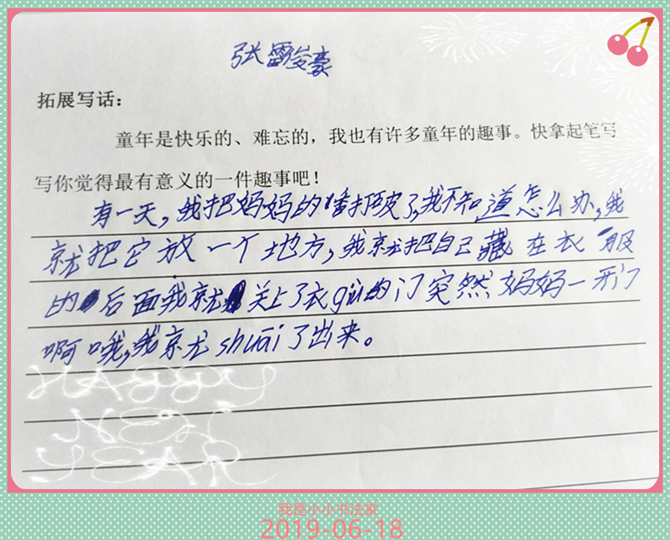 张雷俊豪
拓展写话：
童年是快乐的、难忘的，我也有许多童年的趣事。快拿起笔写
写你觉得最有意义的一件趣事吧！
有一天，我把妈妈的打破了，我不知道怎么办，我
就把它放一个地方，我就把自己藏在衣服
的后面我就关上了衣guì的门突然妈妈一开门
啊哦，我就shuāi了出来。
HAPPY
NEW
YEAR
我是小小书法家
2019-06-18